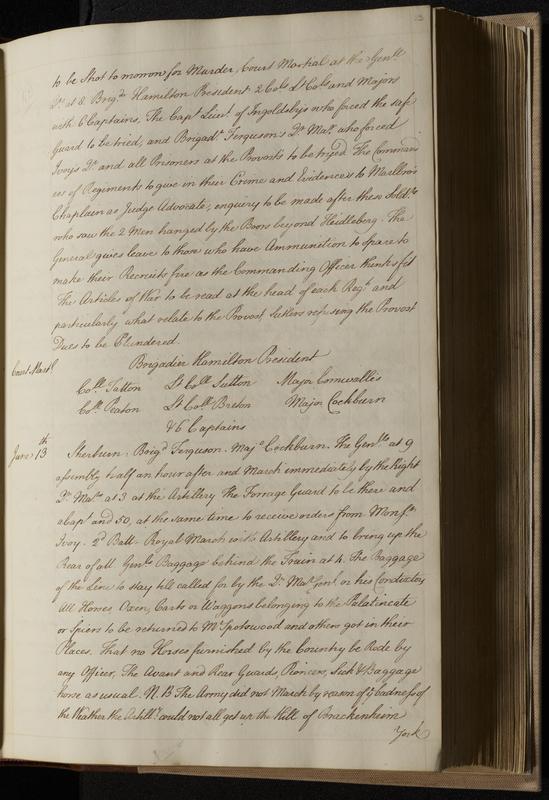 to be Shot to morrow for Murder, Court Martial at the Gen.ls
Qr. at 8. Brig.r Hamilton President 2 Cols Lt Cols and Majors
with 6 Captains. The Capt Lieut of Ingoldsbys who forced the safe
Guard to be tried, and Brigad.r Ferguson's Qr Mar. who forced
Ivoys Dr. and all Prisoners at the Provosts to be tryed The
of Regiments to give in their Crime and Evidences to Marlbro's
Chaplain as Judge Advocate, enquiry to be made after these Sold.rs
who saw the 2 Men hanged by the Boors beyond Heidleberg. The
General gives leave to those who have Ammunition to Spare to
make their Recruits fire as the Commanding Officer thinks fit
The Articles of War to be read at the head of each Reg.t and
particularly what relate to the Provost Sutlers refusing the Provost
Dues to be Plundered.
Court Marsl
Brigadier Hamilton President
Coll. Tatton Lt Coll Sutton Major Cornwallis
Coll. Peaton Lt Coll Breton Major Cockburn
& 6 Captains
June 13th
Sherburn. Brigr. Ferguson. Majr. Cockburn. The Gen.ls at 9
assembly half an hour after and March immediately by the Right
Qr. Mars. at 3 at the Artillery The Forrage Guard to be there and
a Capt and 50, at the same time to receive orders from Monsr.
Ivoy. 2d. Batt. Royal March with Artillery and to bring up the
Rear of all Genls Baggage behind the Train at 4. The Baggage
of the Line to stay till called for by the Qr. Mar. Genl. or his Conductors
All Horses, Oxen, Carts or Waggons belonging to the Palatinate
or Spiers to be returned to Mr. Spotswood and others got in their
Places. That no Horses furnished by the Country be Rode by
any Officer, The Avant and Rear Guards, Pioneers, Sick & Baggage
horse as usual. N.B The Army did not March by reason of ye badness of
the Weather the Artill.y could not all get up the Hill of Brackenheim
York